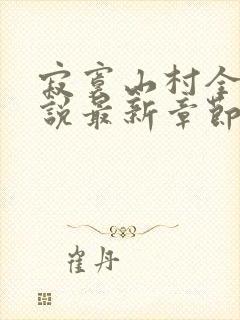 寂寞山村全
說最新章節
崔丹